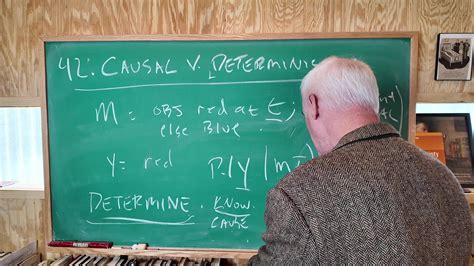 42: CAUSAL V. DETERMINIS
M = OBS red at t;
else Blue.
Y = red Pr(Y|m
DETERMINE. KNOW.
CAUSE